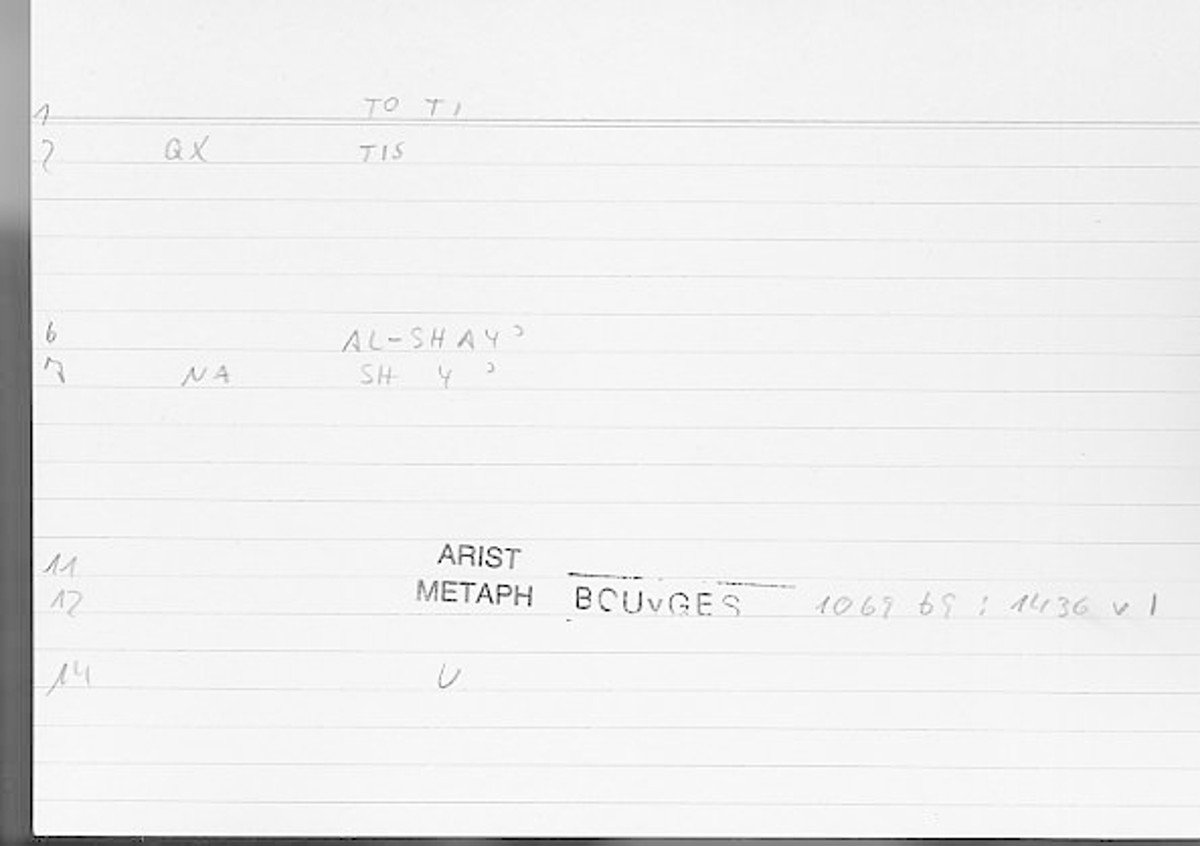 1 TO TI
2 QX TIS
6 AL-SHAYʾ
7 NA SH Y ʾ
11 ARIST
12 METAPH BOUYGES 1069 b9 : 1436 v 1
14 U